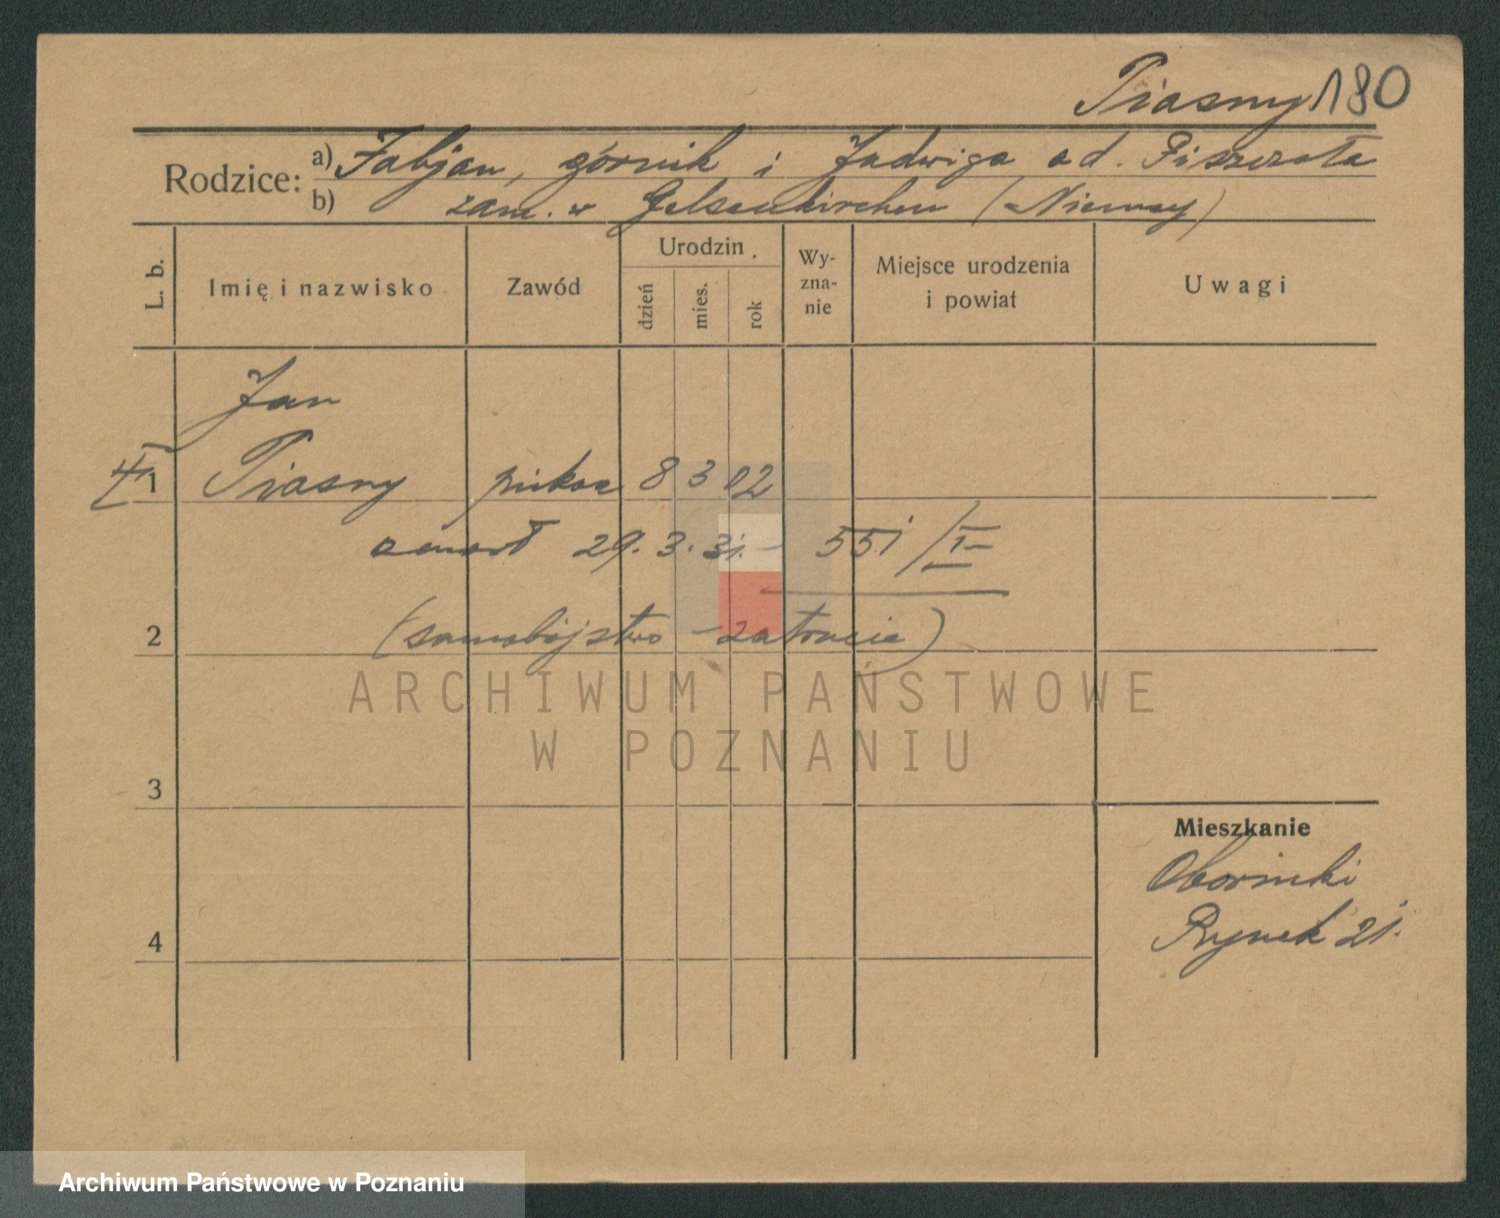 Piasny 180
Rodzice: a) Fabjan, górnik i Jadwiga od. Piszczoła
b) zam. w Gelsenkirchen (Niemcy)
L. b.
Imię i nazwisko
Zawód
Urodzin.
dzień
mies.
rok
Wy-
zna-
nie
Miejsce urodzenia
i powiat
Uwagi
Jan
1 Piasny piekarz 8 3 02
zmarł 29. 3. 31. – 551/I
2 (samobójstwo – zatrucie)
ARCHIWUM PAŃSTWOWE
W POZNANIU
3
Mieszkanie
Obornicki
Rynek 21.
4
Archiwum Państwowe w Poznaniu